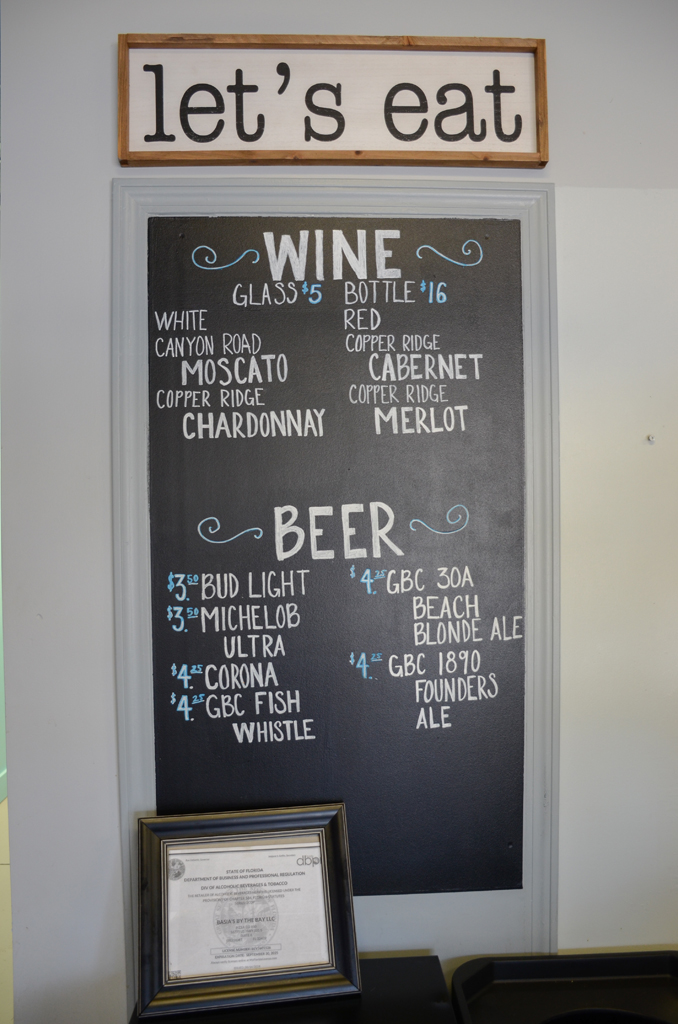 let's eat
WINE
GLASS $5 BOTTLE $16
WHITE
CANYON ROAD
MOSCATO
COPPER RIDGE
CHARDONNAY
RED
COPPER RIDGE
CABERNET
COPPER RIDGE
MERLOT
BEER
$3.50 BUD LIGHT
$3.50 MICHELOB
ULTRA
$4.25 CORONA
$4.25 GBC FISH
WHISTLE
$4.25 GBC 30A
BEACH
BLONDE ALE
$4.25 GBC 1890
FOUNDERS
ALE
dbp
STATE OF FLORIDA
DEPARTMENT OF BUSINESS AND PROFESSIONAL REGULATION
DIV OF ALCOHOLIC BEVERAGES & TOBACCO
BY THE BAY LLC